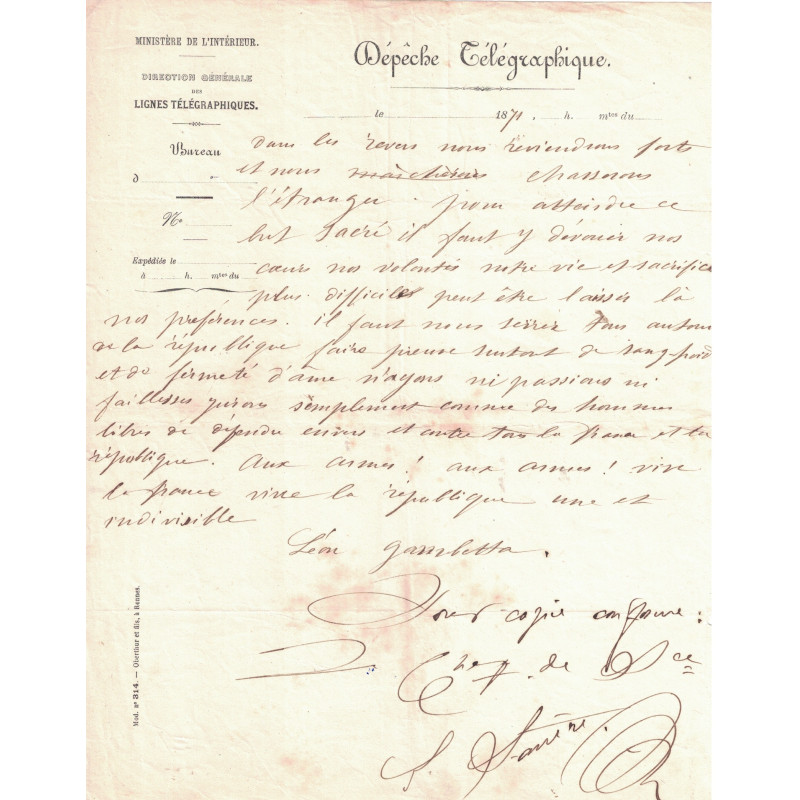 MINISTÈRE DE L'INTÉRIEUR.
DIRECTION GÉNÉRALE
DES
LIGNES TÉLÉGRAPHIQUES.
Bureau
d
N°
Expédiée le
à h. mtes du
Dépêche Télégraphique.
le 1871. h. mtes du
dans les revers nous reviendrons forts
et nous chasserons
l'étranger. pour atteindre ce
but sacré il faut y dévouer nos
cœurs nos volontés notre vie et sacrifice
plus difficiles peut être laisser là
nos préférences. il faut nous serrer tous autour
de la république faire preuve surtout de sang froid
et de fermeté d'âme n'ayons ni passions ni
faiblesses jurons semplement comme des hommes
libres de dépendre envers et contre tous la france et la
république. Aux armes! aux armes! vive
la france vive la république une et
indivisible
Léon gambetta.
Pour copie conforme:
Le Chef de Sce
Mod. n° 314. — Oberthur et fils, à Rennes.